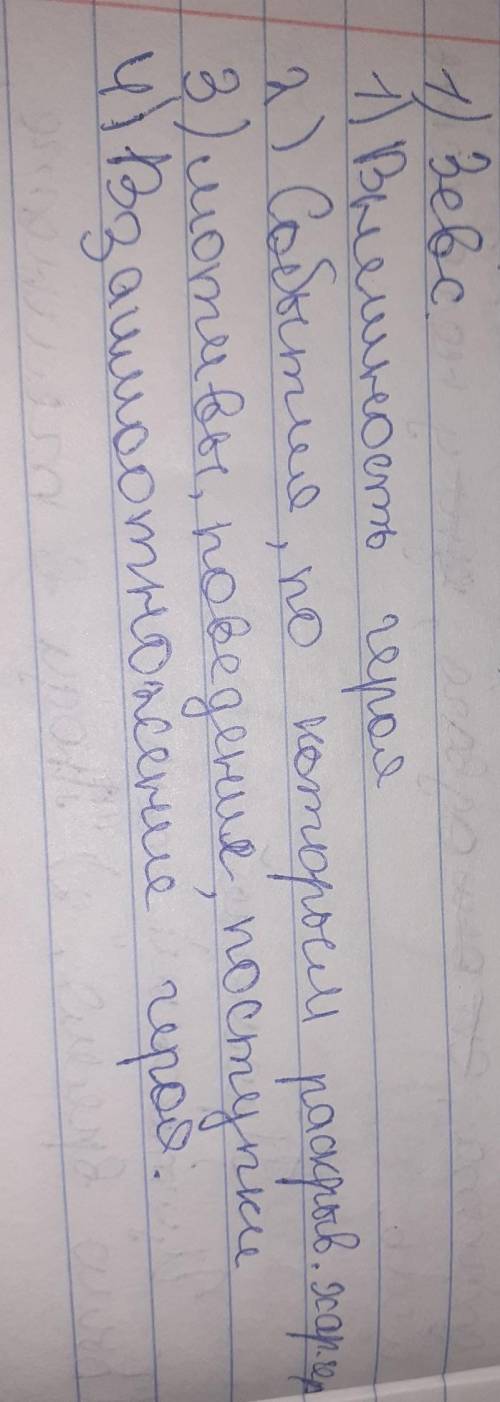 1) Зевс.
1) Внешность героя
2) События, по которым раскрыв. хар. гер
3) мотивы, поведения, поступки
4) Взаимоотножение героя.